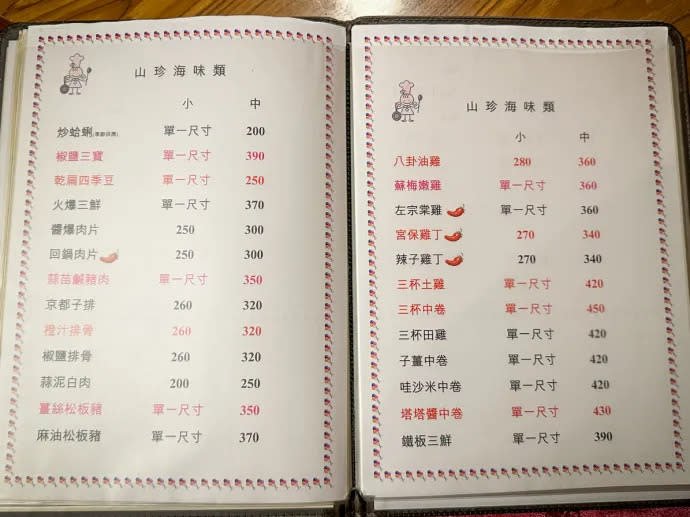 山珍海味類
小 中
炒蛤蜊 單一尺寸 200
椒鹽三寶 單一尺寸 390
乾扁四季豆 單一尺寸 250
火爆三鮮 單一尺寸 370
醬爆肉片 250 300
回鍋肉片 250 300
蒜苗鹹豬肉 單一尺寸 350
京都子排 260 320
橙汁排骨 260 320
椒鹽排骨 260 320
蒜泥白肉 200 250
薑絲松板豬 單一尺寸 350
麻油松板豬 單一尺寸 370
山珍海味類
小 中
八卦油雞 280 360
蘇梅嫩雞 單一尺寸 360
左宗棠雞 單一尺寸 360
宮保雞丁 270 340
辣子雞丁 270 340
三杯土雞 單一尺寸 420
三杯中卷 單一尺寸 450
三杯田雞 單一尺寸 420
子薑中卷 單一尺寸 420
哇沙米中卷 單一尺寸 420
塔塔醬中卷 單一尺寸 430
鐵板三鮮 單一尺寸 390